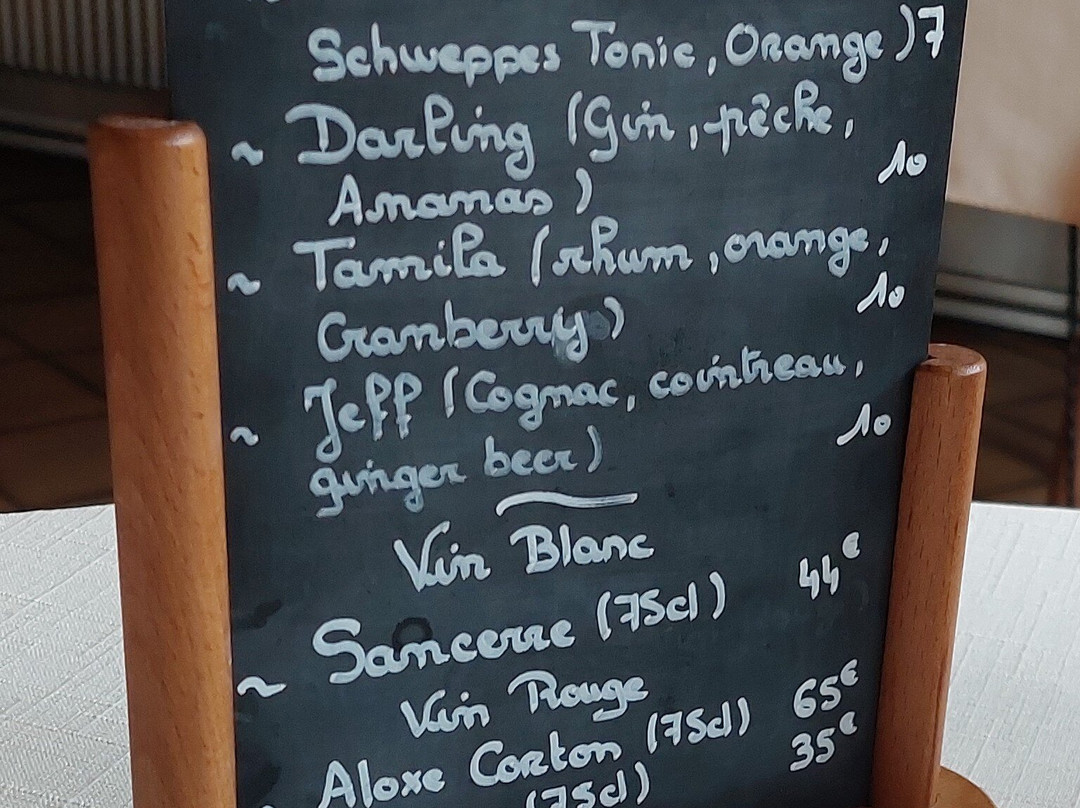 Schweppes Tonic, Orange) 7
~ Darling (Gin, pêche,
Ananas) 10
~ Tamila (rhum, orange,
Cranberry) 10
~ Jeff (Cognac, cointreau,
ginger beer) 10
Vin Blanc
~ Sancerre (75cl) 44€
Vin Rouge
Aloxe Corton (75cl) 65€
(75cl) 35€